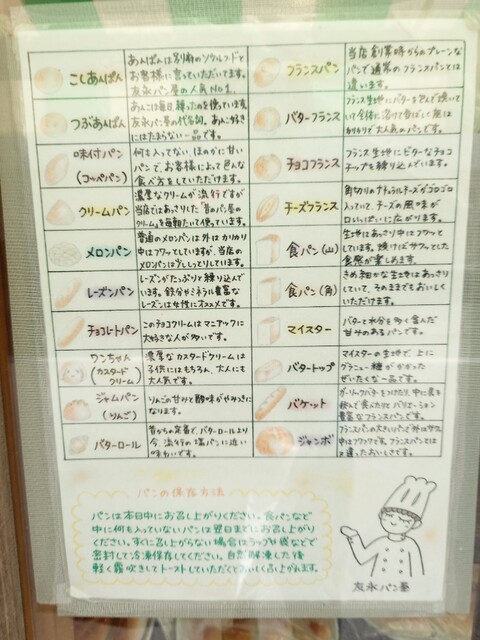 こしあんぱん
あんぱんは別府のソウルフードと
お客様に言っていただいてます。
友永パン屋の人気No1。
つぶあんぱん
あんこは毎日、練ったのを使っています。
友永パン屋の代名詞。あんこ好き
にはたまらない一品です。
味付パン
(コッペパン)
何も入ってない、ほのかに甘い
パンで、お客様によって色んな
食べ方をしていただけます。
クリームパン
濃厚なクリームが流行ですが
当店ではあっさりした「昔のパン屋の
クリーム」を毎朝たいて使っています。
メロンパン
普通のメロンパンは外はカリカリ
中はフワッてしていますが、当店の
メロンパンは少ししっとりしています。
レーズンパン
レーズンがたっぷりと練り込んで
います。鉄分やミネラル豊富な
レーズンは女性にオススメです。
チョコレートパン
このチョコクリームはマニアックに
大好きな人が多いです。
ワンちゃん
(カスタード
クリーム)
濃厚なカスタードクリームは
子供にはもちろん、大人にも
大人気です。
ジャムパン
(りんご)
りんごの甘みと酸味がやみつきに
なります。
バターロール
昔からの定番で、バターロールより
今、流行の塩パンに近い
味わいです。
フランスパン
当店創業時からのプレーンな
パンで通常のフランスパンとは
違います。
バターフランス
フランス生地にバターを包んで焼いて
いて全体に溶けて香ばしく底は
カリカリで大人気のパンです。
チョコフランス
フランス生地にビターなチョコ
チップを練り込んでいます。
チーズフランス
角切りのナチュラルチーズがゴロゴロ
入っていて、チーズの風味が
口いっぱいに広がります。
食パン(山)
生地はあっさり中はフワッと
しています。焼けばサクッとした
食感が楽しめます。
食パン(角)
きめ細かな生地はあっさり
していて、そのままでもおいしく
いただけます。
マイスター
バターと水分を多く含んだ
甘みのあるパンです。
バタートップ
マイスターの生地で、上に
グラニュー糖がかかった
ぜいたくな一品です。
バケット
ガーリックバターをつけたり、中に具を
挟んで食べたりとバリエーション
豊富なフランスパンです。
ジャンボ
フランスパンの大きいパンで外はサクッ
中はフワッです。フランスパンとは
違ったおいしさです。
パンの保存方法
パンは本日中にお召し上がりください。食パンなど
中に何も入っていないパンは翌日までにお召し上がり
ください。すぐに召し上がらない場合はラップや袋などで
密封して冷凍保存してください。自然解凍した後
軽く霧吹きしてトーストしていただくとおいしく召し上がれます。
友永パン屋